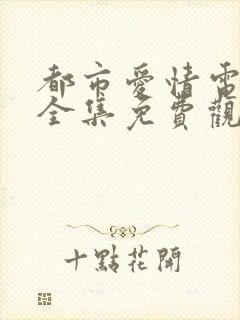 都市愛情電
全集免費觀
十點花開